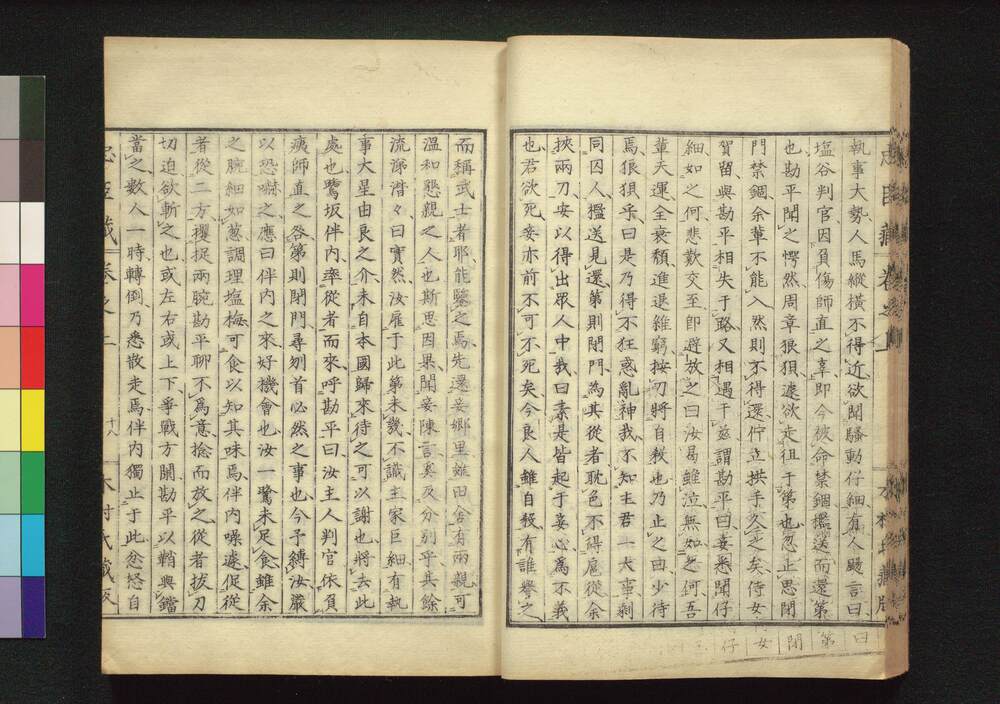 執事大勢人馬縱橫不得近欲聞騷動仔細有人颺言曰
塩谷判官因負傷師直之辜即今被命禁錮檻送而還第
也勘平聞之愕然周章狼狽遽欲走徂于第也忽止思閉
門禁錮余輩不能入然則不得還佇立拱手久之矣侍女
賀留與勘平相失于路又相遇于茲謂勘平曰妾悉聞仔
細如之何悲歎交至即避放之曰汝曷雖泣無如之何吾
輩天運全衰頽進退維窮按刃將自殺也乃止之曰少待
焉狼狽乎曰是乃得不狂惑亂神我不知主君一大事剩
同囚人檻送見還第則閉門為其從者耽色不得扈從余
挾兩刀安以得出眾人中哉曰素是皆起于妾心為不義
也君欲死妾亦前不可不死矣今良人雖自殺有誰譽之
而稱武士者耶能鑒之焉先還妾鄉里雖田舍有兩親可
溫和懇親之人也斯思因果聞妾陳言矣及分別乎其餘
流涕潸々曰實然汝雇于此第未幾不識主家巨細有執
事大星由良之介未自本國歸來待之可以謝也將去此
處也鷺坂伴內率從者而來呼勘平曰汝主人判官依負
痍師直之咎第則閉門尋刎首必然之事也今予縛汝嚴
以恐嚇之應曰伴內之來好機會也汝一鷺未足食雖余
之腕細如葱調理塩梅可食以知其味焉伴內噪遽促從
者從二方攖捉兩腕勘平聊不爲意捻而放之從者拔刀
切迫欲斬之也或左右或上下爭戰方開勘平以鞘與鐺
當之數人一時轉倒乃悉散走焉伴內獨止于此忿怒自